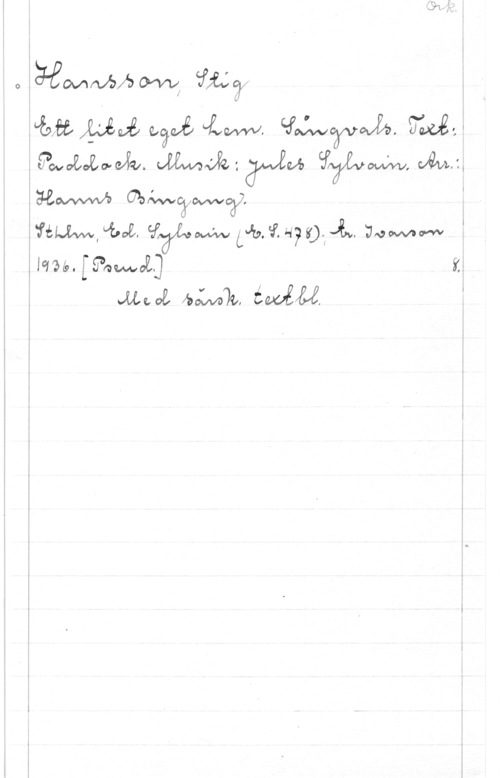 Ork.
Hansson, Stig
Ett litet eget hem. Sångvals. Text:
Paddock. Musik: Jules Sylvain. Arr.:
Hanns Bingang.
Sthlm, Ed. Sylvain (E. S. 478), tr. Ivarson
1936. [Pseud.] 8.
Med särsk. textbl.